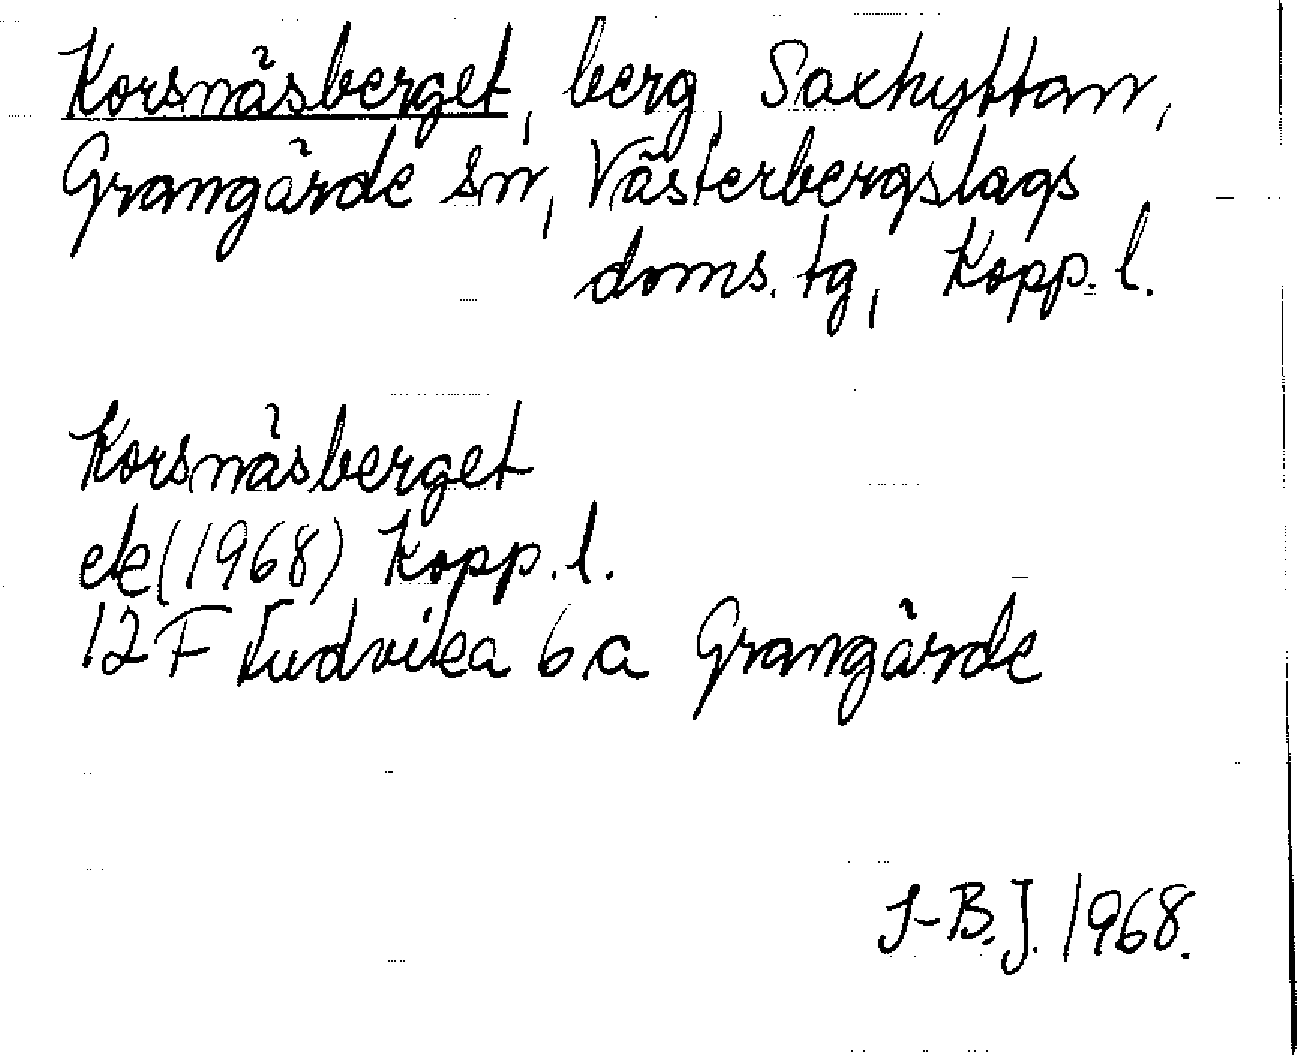 Korsnäsberget, berg, Saxhyttan,
Grangärde sn, Västerbergslags
doms. tg, Kopp. l.
Korsnäsberget
ek (1968) Kopp. l.
12 F Ludvika 6 a Grangärde
I-B. J. 1968.